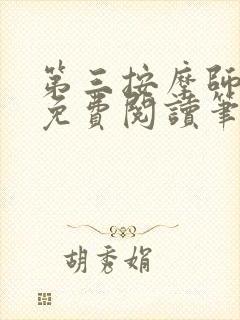 第三按摩師
免費閱讀筆
胡秀娟